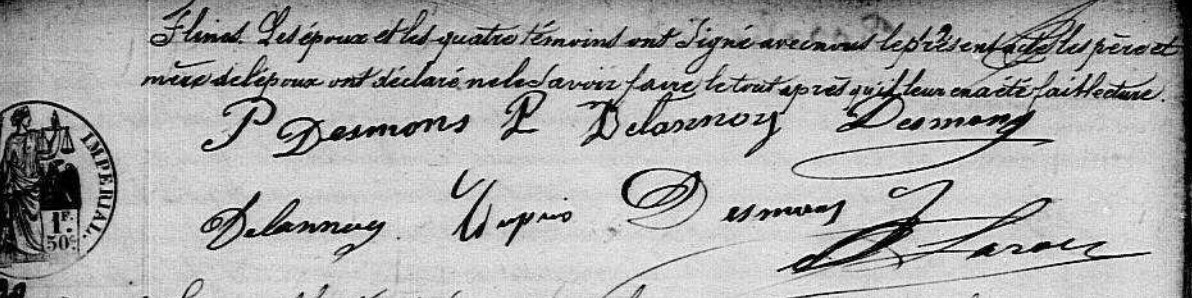 Flines. Les époux et les quatre témoins ont signé avec nous le présent acte les père et
mère de l'époux ont déclaré ne le savoir faire le tout après qu'il leur en a été fait lecture.
P Desmons P Delannoy Desmons
Delannoy Dupuis Desmons
IMPERIAL.
1F.
50c.